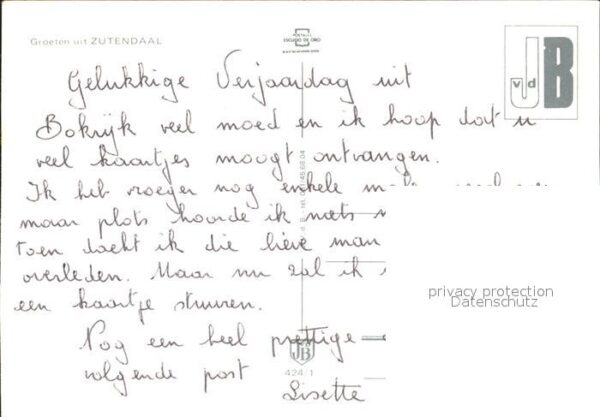 Groeten uit ZUTENDAAL
POSTALES
ESCUDO DE ORO
J vd B
Gelukkige Verjaardag uit
Bokrijk veel moed en ik hoop dat u
veel kaartjes moogt ontvangen.
Ik heb vroeger nog enkele
maar plots hoorde ik niets
toen dacht ik die lieve man
overleden. Maar nu zal ik
een kaartje sturen.
privacy protection
Datenschutz
Nog een heel prettige
JB
volgende post
424/1
Lisette